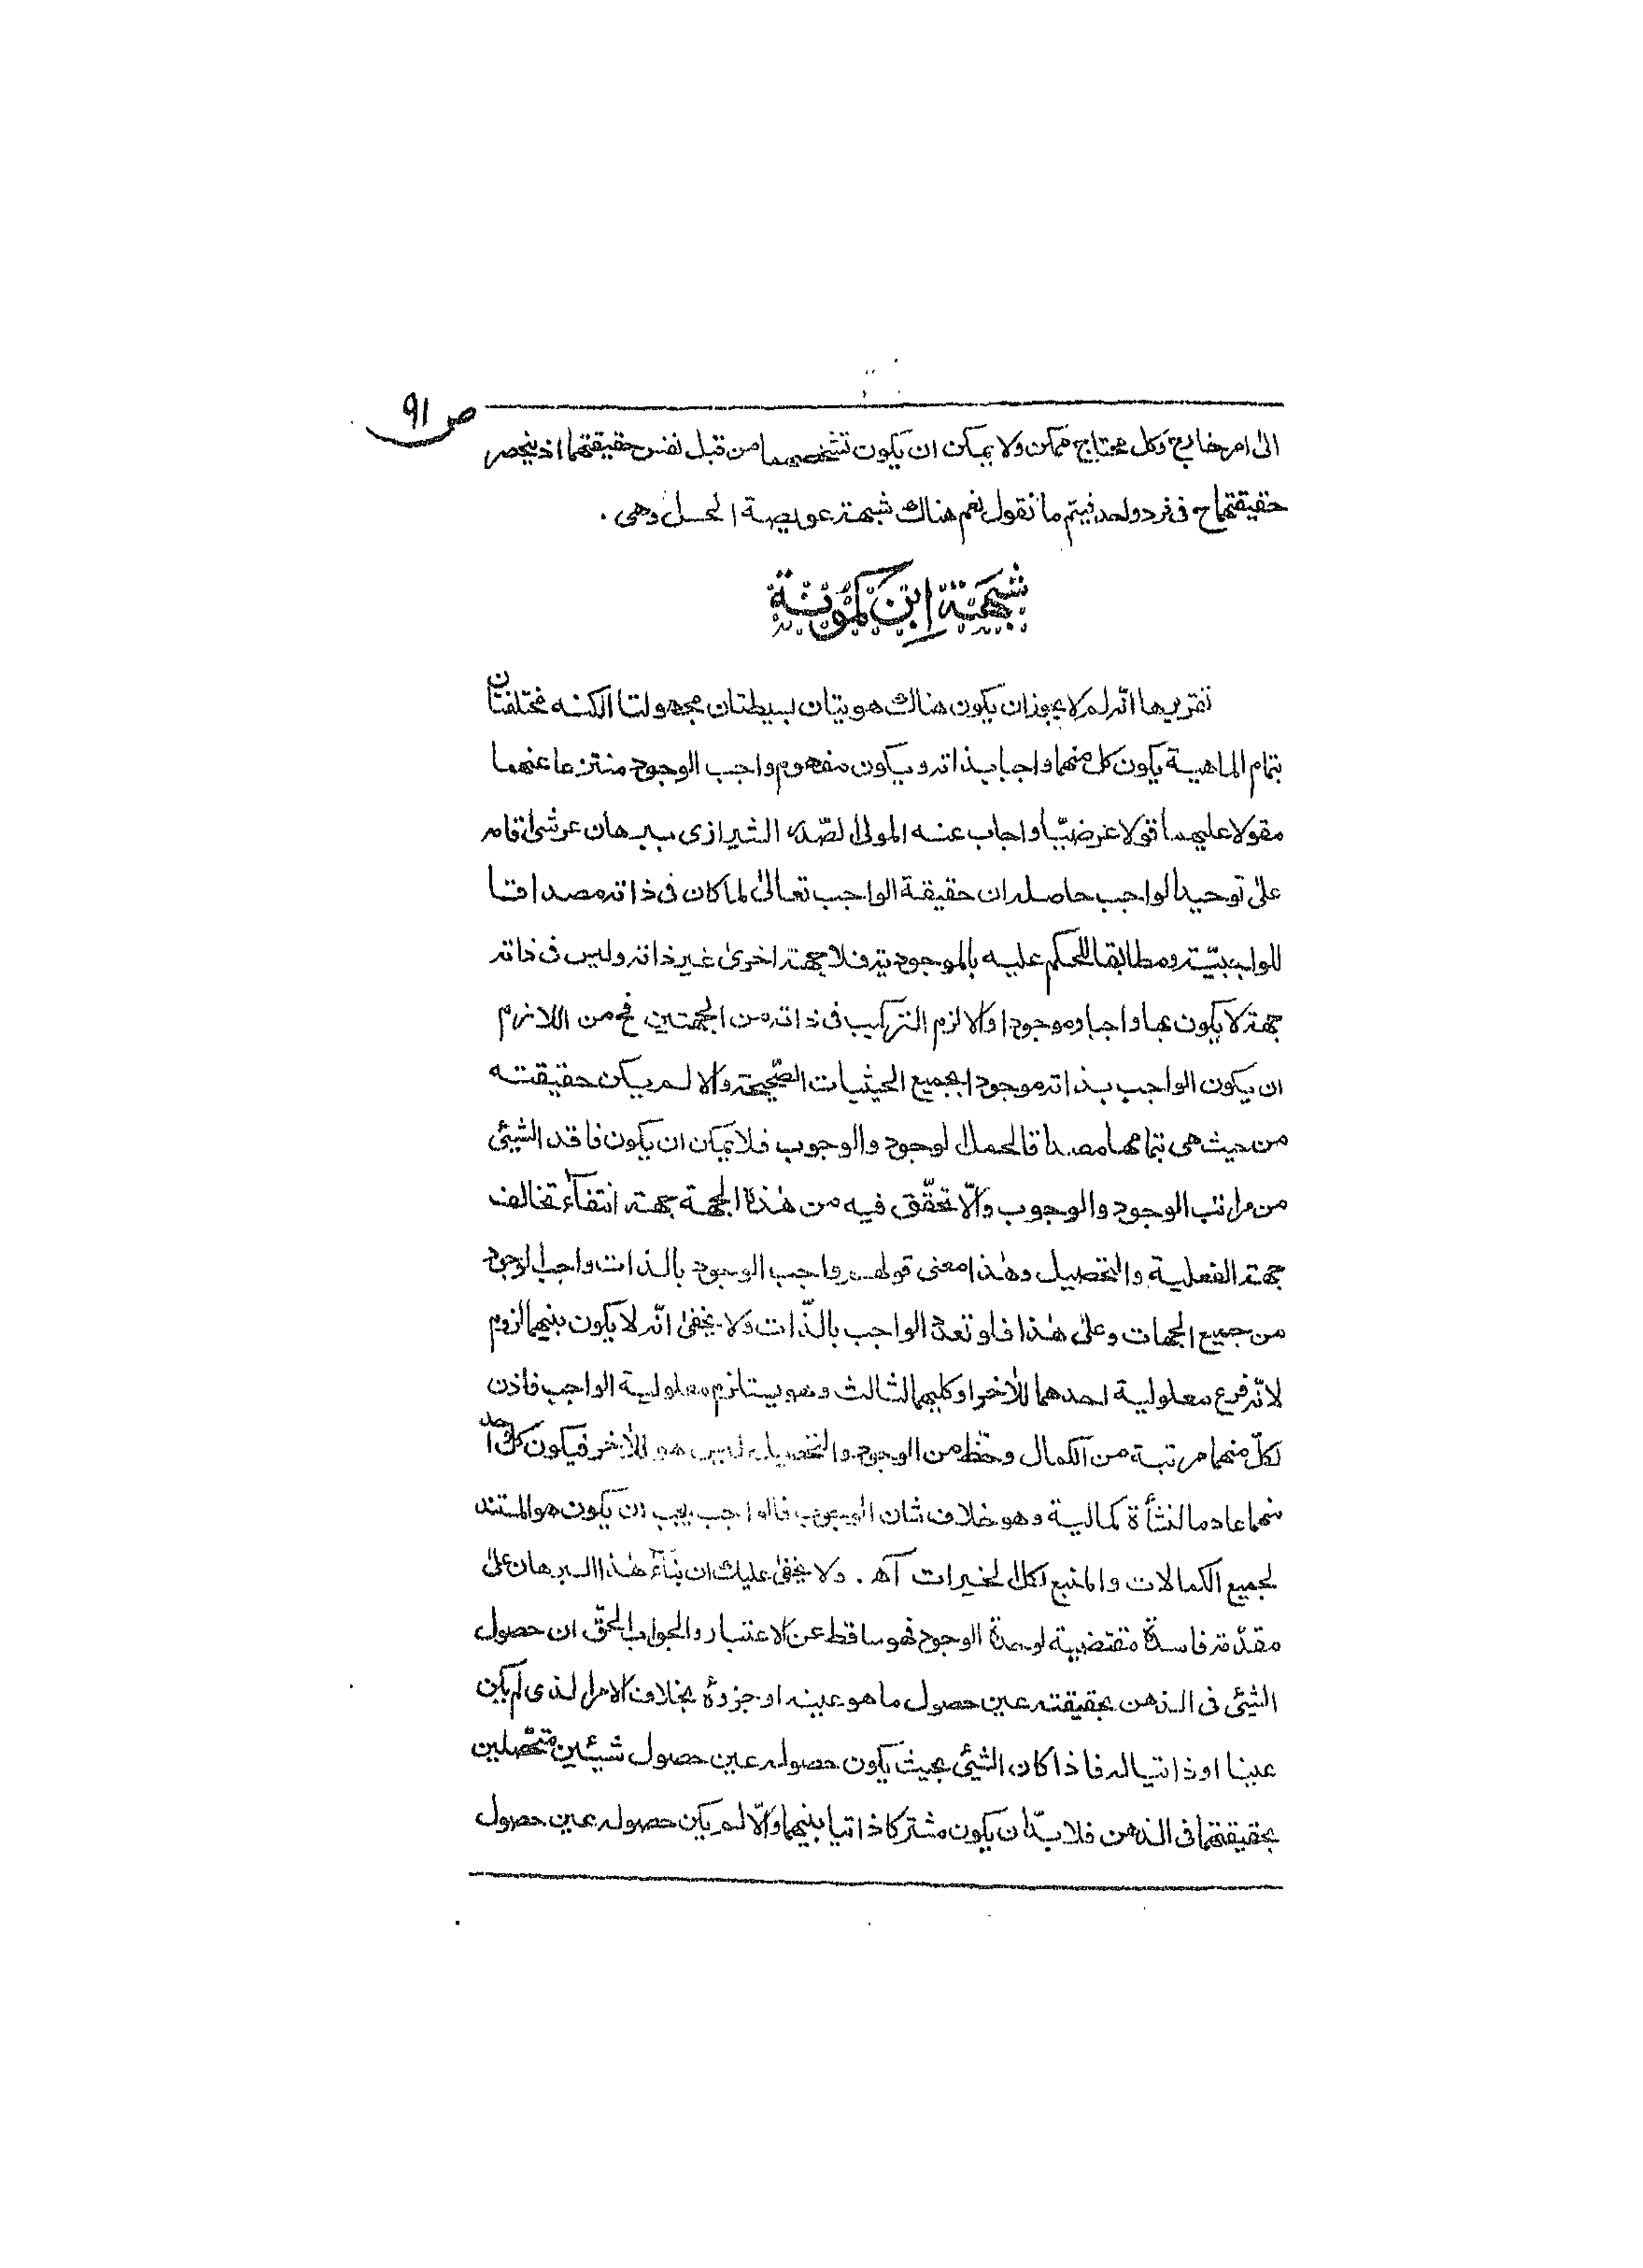 ص ٩١
الى امر خارج وكل محتاج ممكن ولا يمكن ان يكون تشخصهما من قبل نفس حقيقتهما اذ ينحصر
حقيقتهما ح فى فرد واحد فيتم ما نقول نعم هناك شبهة عويصة الحل وهى .
شبهة ابن كمونة
تقريرها انّه لم لا يجوز ان يكون هناك هويتان بسيطتان مجهولتا الكنه مختلفتان
بتمام الماهية يكون كل منهما واجبا بذاته ويكون مفهوم واجب الوجود منتزعا عنهما
مقولا عليهما قولا عرضيّا واجاب عنه المولى الصّدر الشيرازى ببرهان عرشى اقامه
على توحيد الواجب حاصله ان حقيقة الواجب تعالى لما كان فى ذاته مصداقا
للواجبيّة ومطابقا للحكم عليه بالموجودية فلا جهة اخرى غير ذاته وليس فى ذاته
جهة لا يكون بها واجبا وموجودا والا لزم التركيب فى ذاته من الجهتين فح من اللازم
ان يكون الواجب بذاته موجودا بجميع الحيثيات الصّحيحة والا لم يكن حقيقته
من حيث هى بتمامها مصداقا لحمل الوجود والوجوب فلا يمكن ان يكون فاقد الشيئى
من مراتب الوجود والوجوب والّا تحقّق فيه من هذه الجهة جهة انتفاء تخالف
جهة الفعلية والتحصيل وهذا معنى قولهم واجب الوجود بالذات واجب الوجود
من جميع الجهات وعلى هذا فلو تعدد الواجب بالذّات ولا يخفى انّه لا يكون بينهما لزوم
لانّه فرع معلولية احدهما للاخر او كليهما لثالث وهو يستلزم معلولية الواجب فاذن
لكلّ منهما مرتبة من الكمال وحظّ من الوجود والتحصيل ليس هو للاخر فيكون كل واحد
منهما عادما لنشأة كمالية وهو خلاف شان الوجوب فالواجب يجب ان يكون هو المستند
لجميع الكمالات والمنبع لكل الخيرات آه . ولا يخفى عليك ان بناء هذا البرهان على
مقدّمة فاسدة مقتضية لوحدة الوجود فهو ساقط عن الاعتبار والجواب الحقّ ان حصول
الشيئى فى الذهن بحقيقته عين حصول ما هو عينه او جزوه بخلاف الامر الذى لم يكن
عينا او ذاتيا له فاذا كان الشيئى بحيث يكون حصوله عين حصول شيئين متحصّلين
بحقيقتهما فى الذهن فلا بدّ ان يكون مشتركا ذاتيا بينهما والّا لم يكن حصوله عين حصول